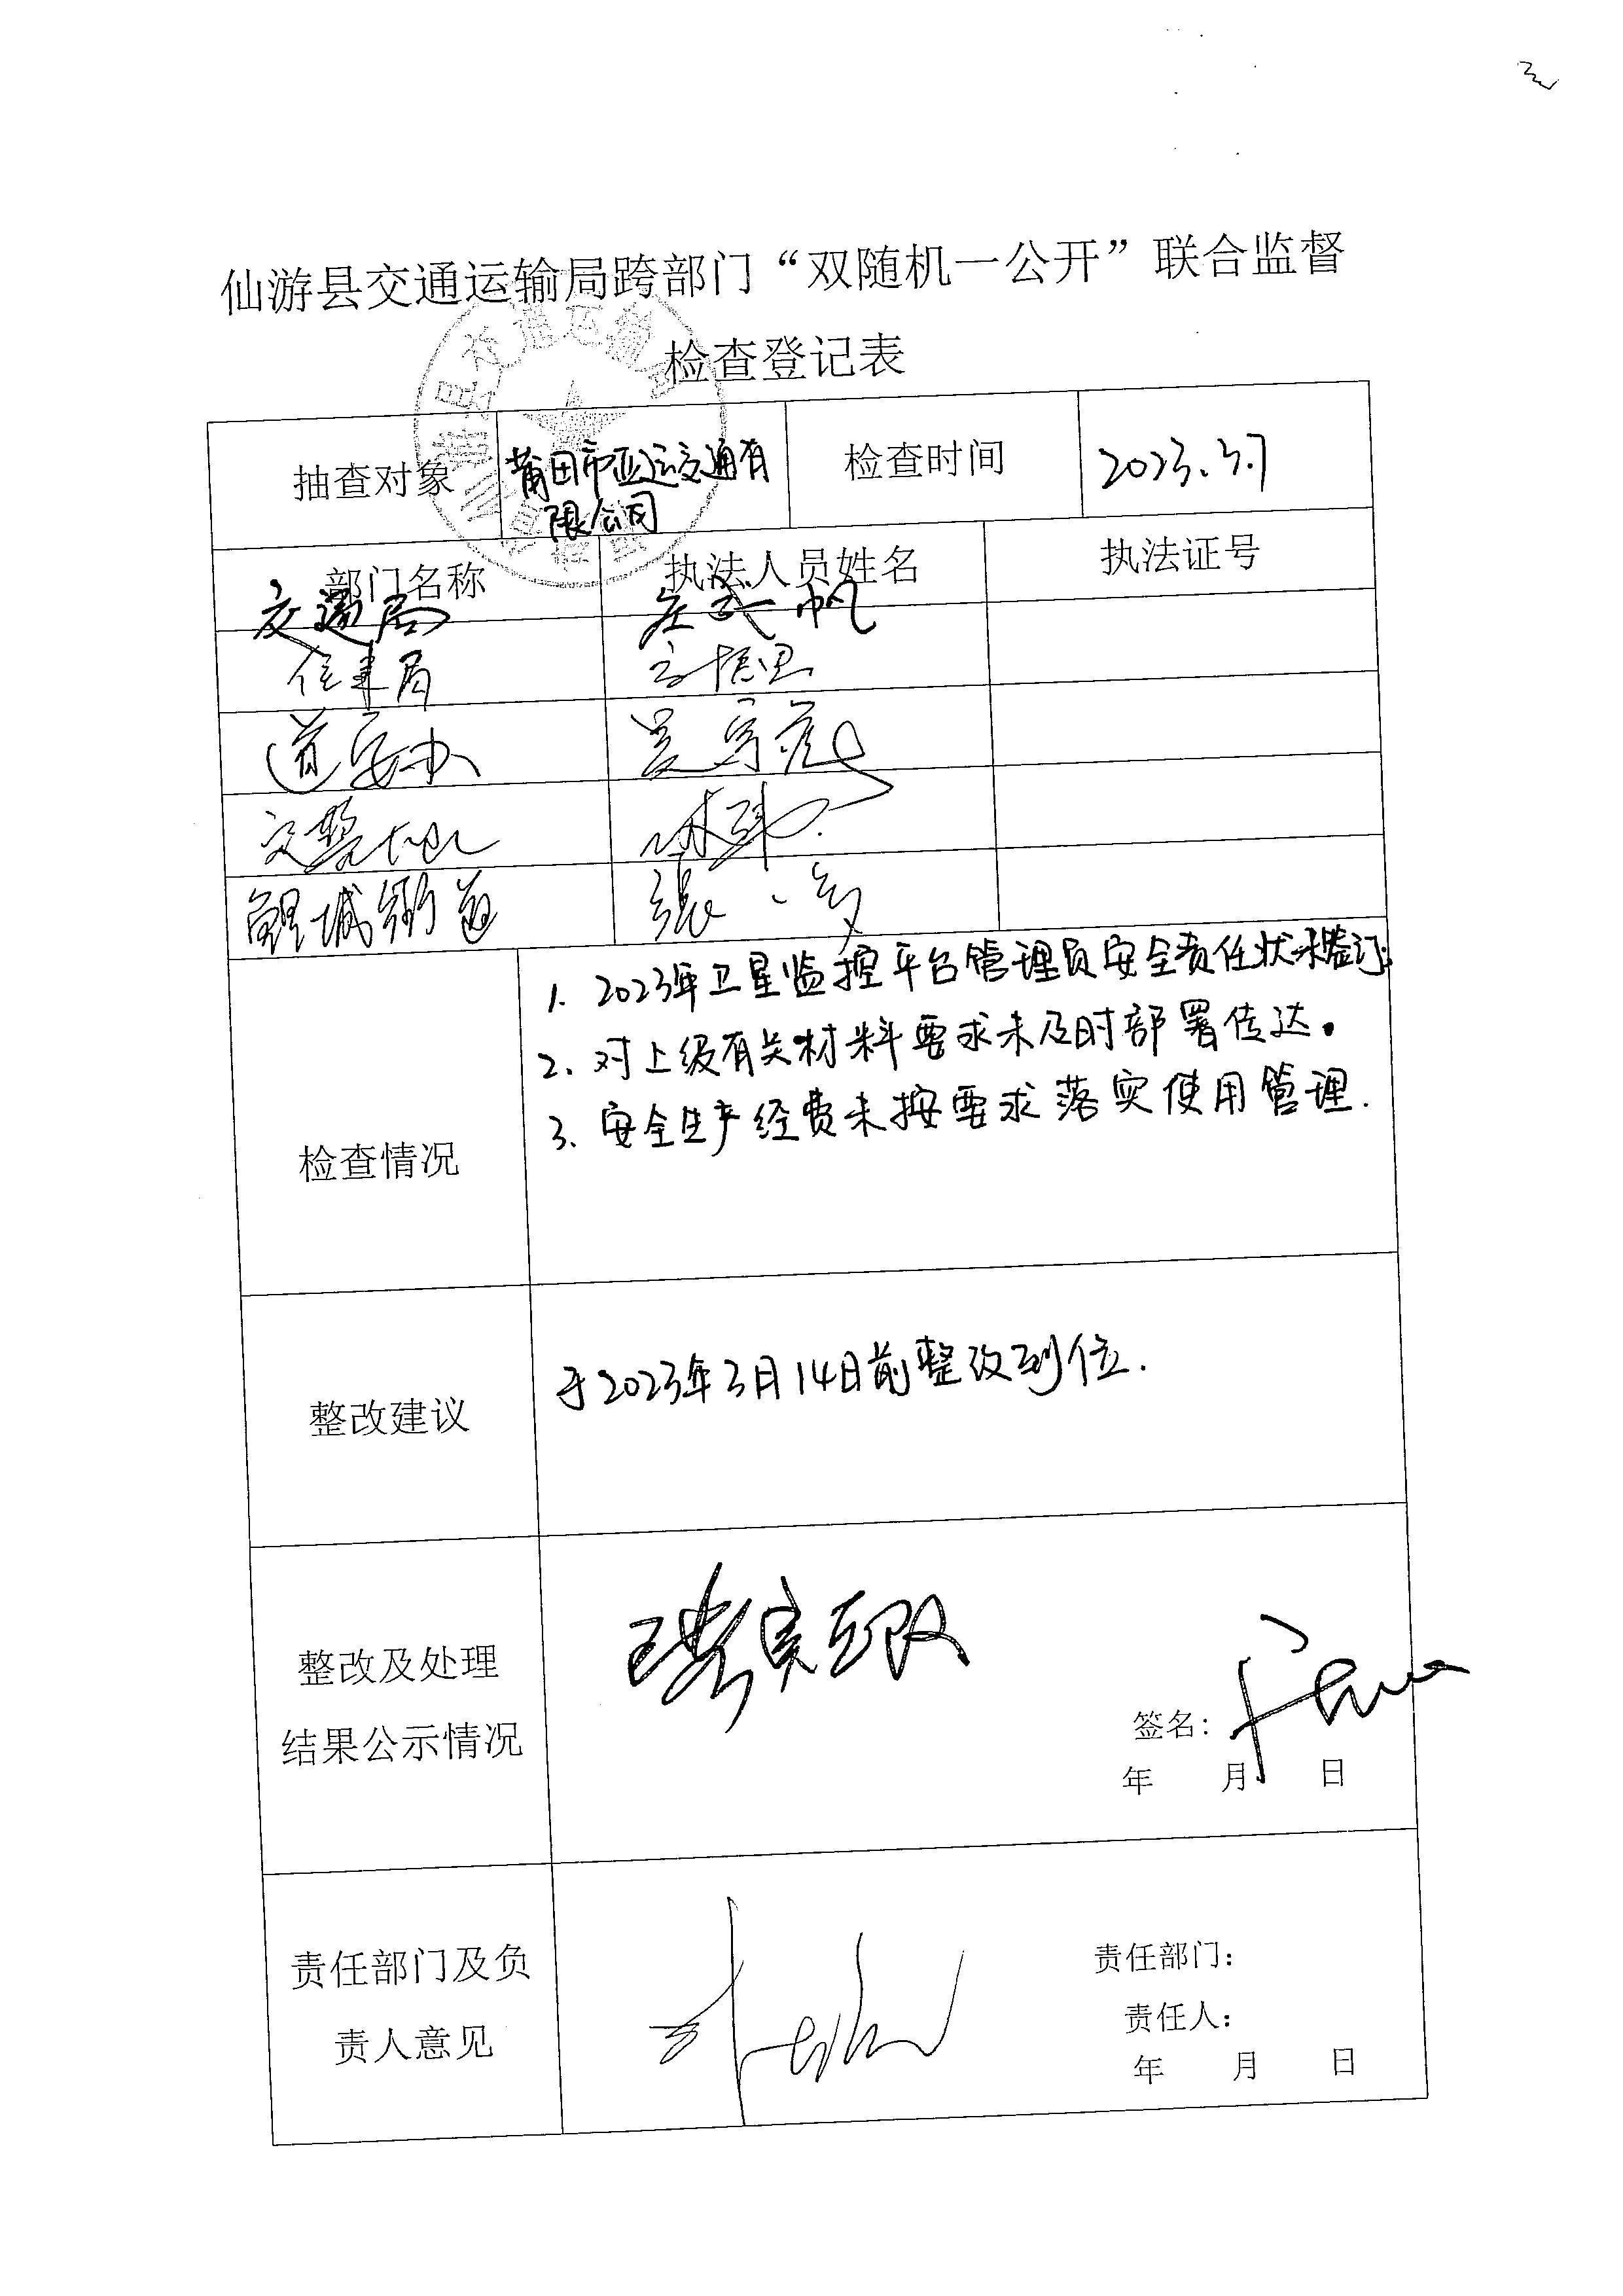 仙游县交通运输局跨部门“双随机一公开”联合监督
检查登记表
抽查对象 莆田市亚运交通有限公司 检查时间 2023.3.7
部门名称 执法人员姓名 执法证号
交通局
住建局
道安办 吴宇
交警大队 林
鲤城街道 張
检查情况
1. 2023年卫星监控平台管理员安全责任状未签订;
2. 对上级有关材料要求未及时部署传达。
3. 安全生产经费未按要求落实使用管理.
整改建议 于2023年3月14日前整改到位.
整改及处理
结果公示情况
签名：
年 月 日
责任部门及负
责人意见
责任部门：
责任人：
年 月 日